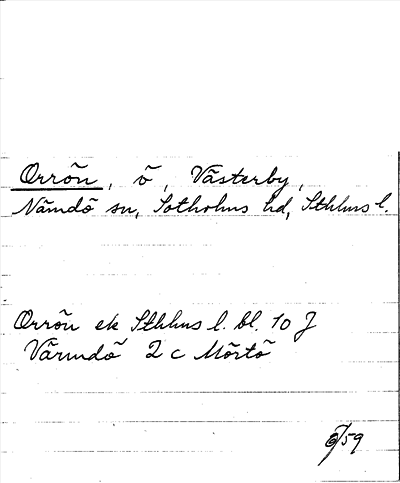 Orrön, ö, Västerby,
Nämdö sn, Sotholms hd, Sthlms l.
Orrön ek Sthlms l. bl. 10 J
Värmdö 2 c Mörtö
/59